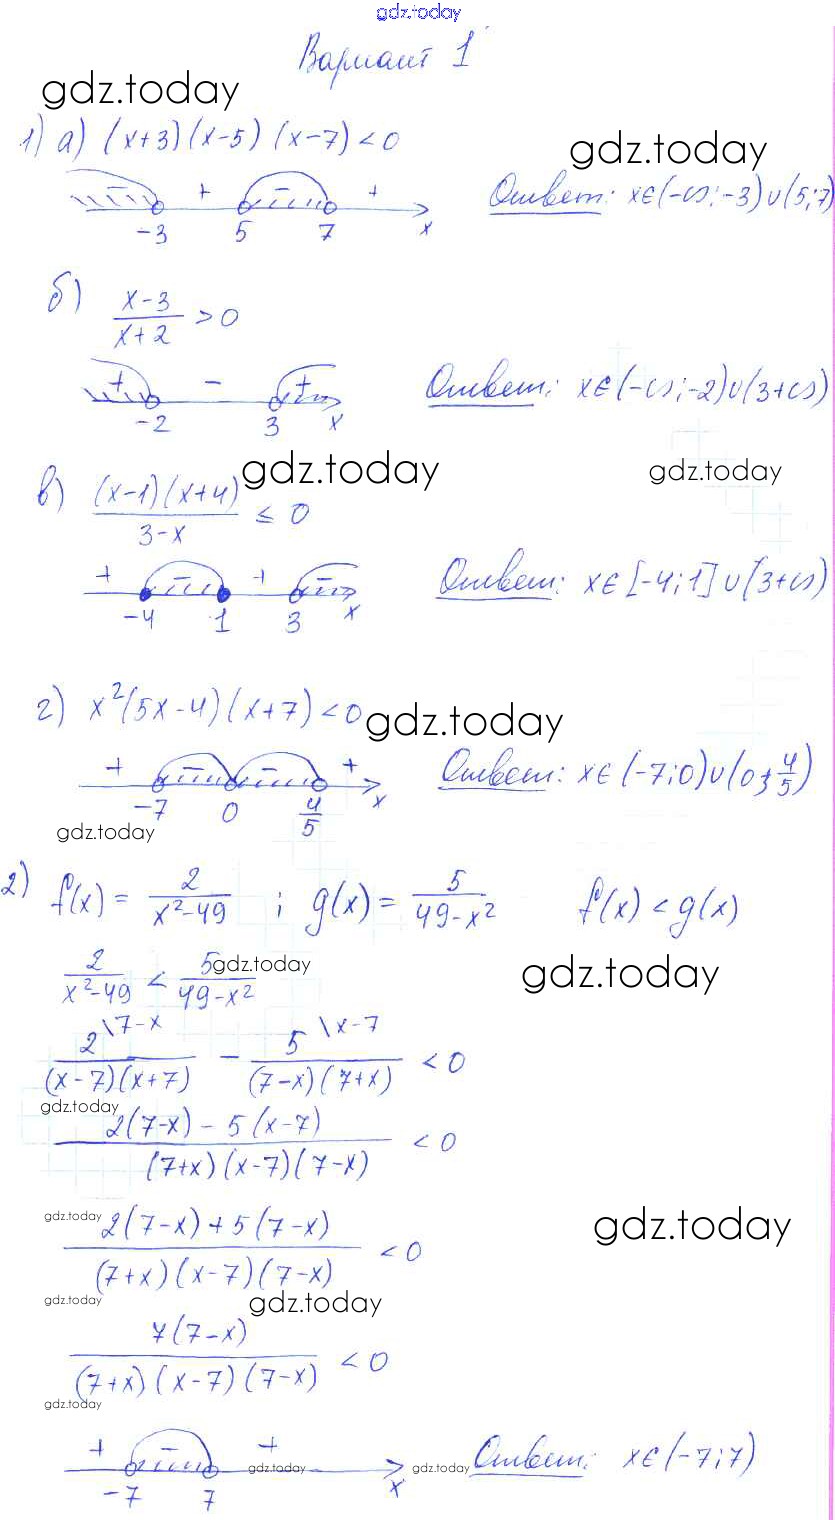 gdz.today
Вариант 1
gdz.today
1) а) (x+3)(x-5)(x-7)<0
gdz.today
- + - +
-3 5 7 x
Ответ: x∈(-∞;-3)∪(5;7)
б) x-3/x+2 >0
+ - +
-2 3 x
Ответ: x∈(-∞;-2)∪(3+∞)
gdz.today gdz.today
в) (x-1)(x+4)/3-x ≤ 0
+ - + -
-4 1 3 x
Ответ: x∈[-4;1]∪(3+∞)
г) x²(5x-4)(x+7)<0
gdz.today
+ - - +
-7 0 4/5 x
Ответ: x∈(-7;0)∪(0;4/5)
gdz.today
2) f(x)= 2/x²-49 ; g(x)= 5/49-x² f(x)<g(x)
2/x²-49 < 5/49-x²
gdz.today gdz.today
2\7-x/(x-7)(x+7) - 5\x-7/(7-x)(7+x) <0
gdz.today
2(7-x)-5(x-7)/(7+x)(x-7)(7-x) <0
gdz.today gdz.today
2(7-x)+5(7-x)/(7+x)(x-7)(7-x) <0
gdz.today gdz.today
7(7-x)/(7+x)(x-7)(7-x) <0
gdz.today
+ - +
-7 7 x
gdz.today gdz.today
Ответ: x∈(-7;7)